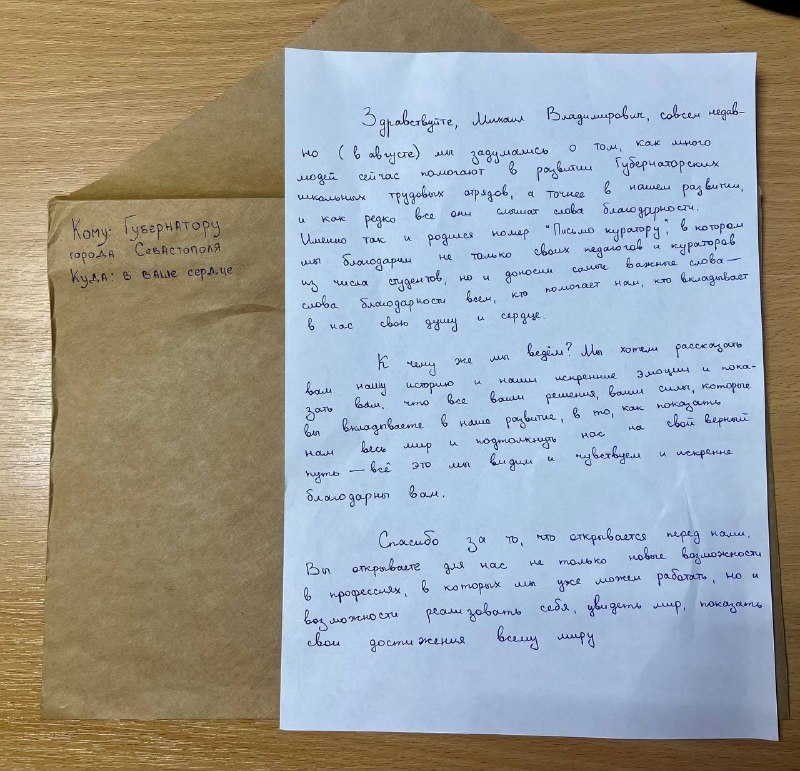 Кому: Губернатору
города Севастополя
Куда: в ваше сердце
Здравствуйте, Михаил Владимирович, совсем недав-
но (в августе) мы задумались о том, как много
людей сейчас помогают в развитии Губернаторских
школьных трудовых отрядов, а точнее в нашем развитии,
и как редко все они слышат слова благодарности.
Именно так и родился номер "Письмо куратору", в котором
мы благодарим не только своих педагогов и кураторов
из числа студентов, но и доносим самые важные слова —
слова благодарности всем, кто помогает нам, кто вкладывает
в нас свою душу и сердце.
К чему же мы ведём? Мы хотели рассказать
вам нашу историю и наши искренние эмоции и пока-
зать вам, что все ваши решения, ваши силы, которые
вы вкладываете в наше развитие, в то, как показать
нам весь мир и подтолкнуть нас на свой верный
путь — всё это мы видим и чувствуем и искренне
благодарны вам.
Спасибо за то, что открывается перед нами.
Вы открываете для нас не только новые возможности
в профессиях, в которых мы уже можем работать, но и
возможности реализовать себя, увидеть мир, показать
свои достижения всему миру